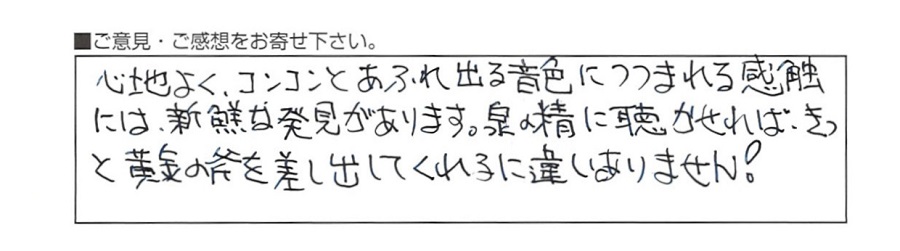 ■ご意見・ご感想をお寄せ下さい。
心地よく、コンコンとあふれ出る音色につつまれる感触
には、新鮮な発見があります。泉の精に聴かせれば、きっ
と黄金の斧を差し出してくれるに違いありません!